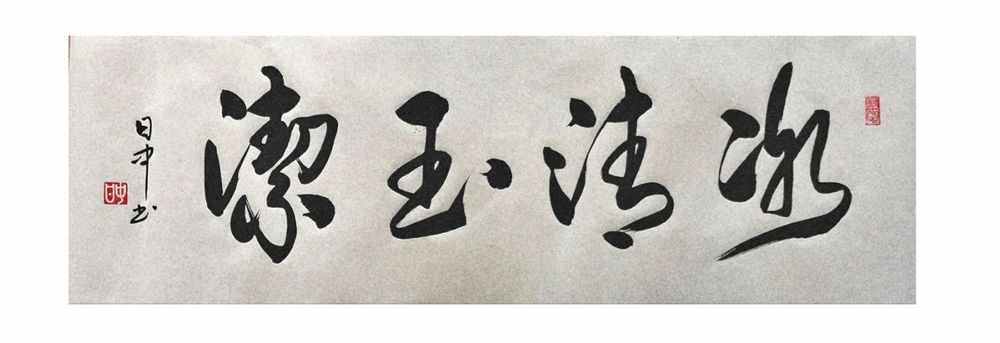 冰清玉潔
日中书